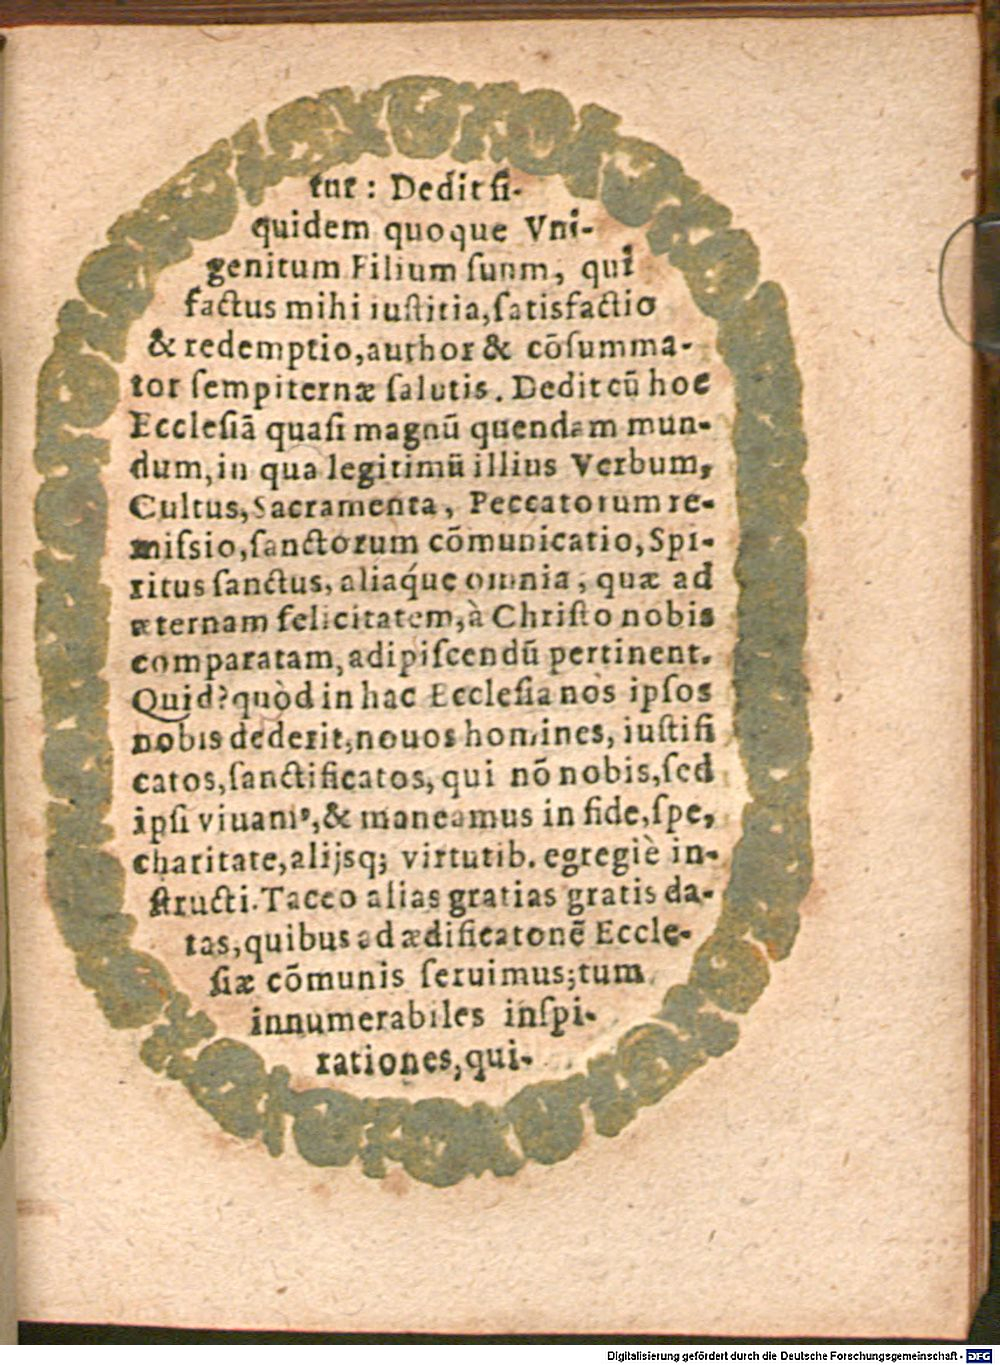 tur: Dedit ſi-
quidem quoque Vni-
genitum Filium ſuum, qui
factus mihi iuſtitia, ſatisfactio
& redemptio, author & cõſumma-
tor ſempiternæ ſalutis. Dedit cũ hoc
Eccleſiã quaſi magnũ quendam mun-
dum, in qua legitimũ illius Verbum,
Cultus, Sacramenta, Peccatorum re-
miſsio, ſanctorum cõmunicatio, Spi-
ritus ſanctus, aliaq́ue omnia, quæ ad
æternam felicitatem, à Chriſto nobis
comparatam, adipiſcendũ pertinent.
Quid? quòd in hac Eccleſia nos ipſos
nobis dederit, nouos homines, iuſtifi
catos, ſanctificatos, qui nõ nobis, ſed
ipſi viuamꝰ, & maneamus in fide, ſpe,
charitate, alijsq; virtutib. egregiè in-
ſtructi. Taceo alias gratias gratis da-
tas, quibus ad ædificatonẽ Eccle-
ſiæ cõmunis ſeruimus; tum
innumerabiles inſpi-
rationes, qui-
Digitalisierung gefördert durch die Deutsche Forschungsgemeinschaft - DFG